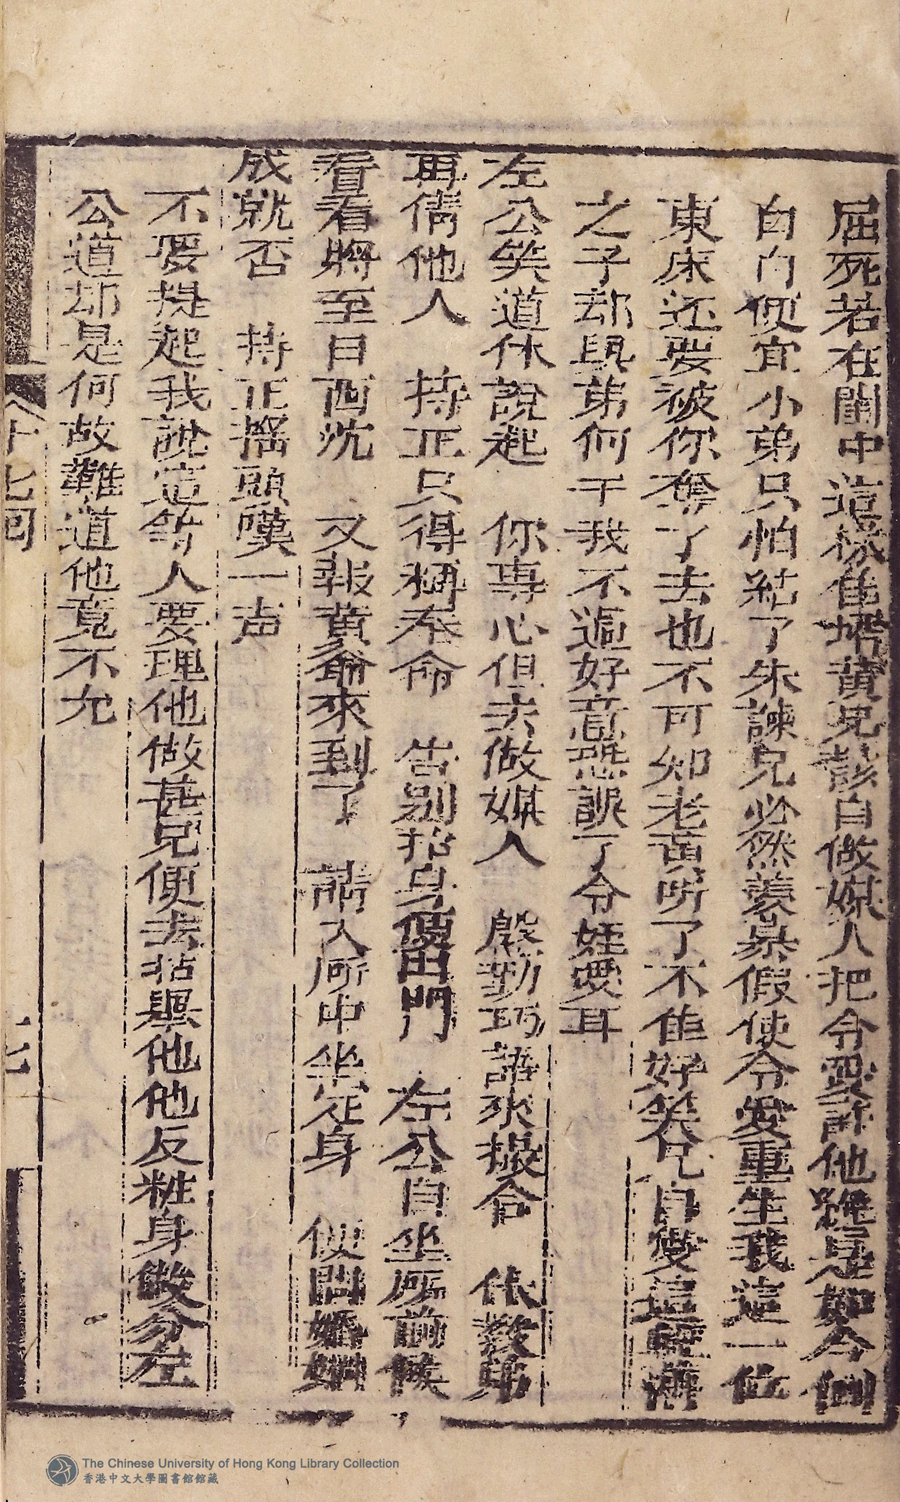 屈死若在閨中這樣佳壻黃兄該自做媒人把令愛許他纔是如今倒
白白便宜小弟只怕結了朱諫兄必然羨慕假使令愛重生我這一位
東床还要被你奪了去也不可知老黃听了不惟好笑兄自愛這輕薄
之子却與弟何干我不過好意恐誤了令姪愛耳
左公笑道休說起 你專心但去做媒人 慇勤巧語來撮合 依教弟
再倩他人 持正只得稱奉命 告别抬身便出門 左公自坐所前候
看看將至日西沈 又報黃爺來到了 請入所中坐定身 便問婚姻
成就否 持正搖頭嘆一声
不要提起我說這等人要理他做甚兄便去拈惹他他反粧身做分左
公道却是何故難道他竟不允
十七回
The Chinese University of Hong Kong Library Collection
香港中文大學圖書館館藏